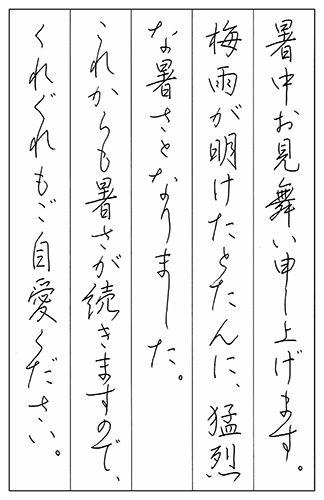 暑中お見舞い申し上げます。
梅雨が明けたとたんに、猛烈
な暑さとなりました。
これからも暑さが続きますので、
くれぐれもご自愛ください。